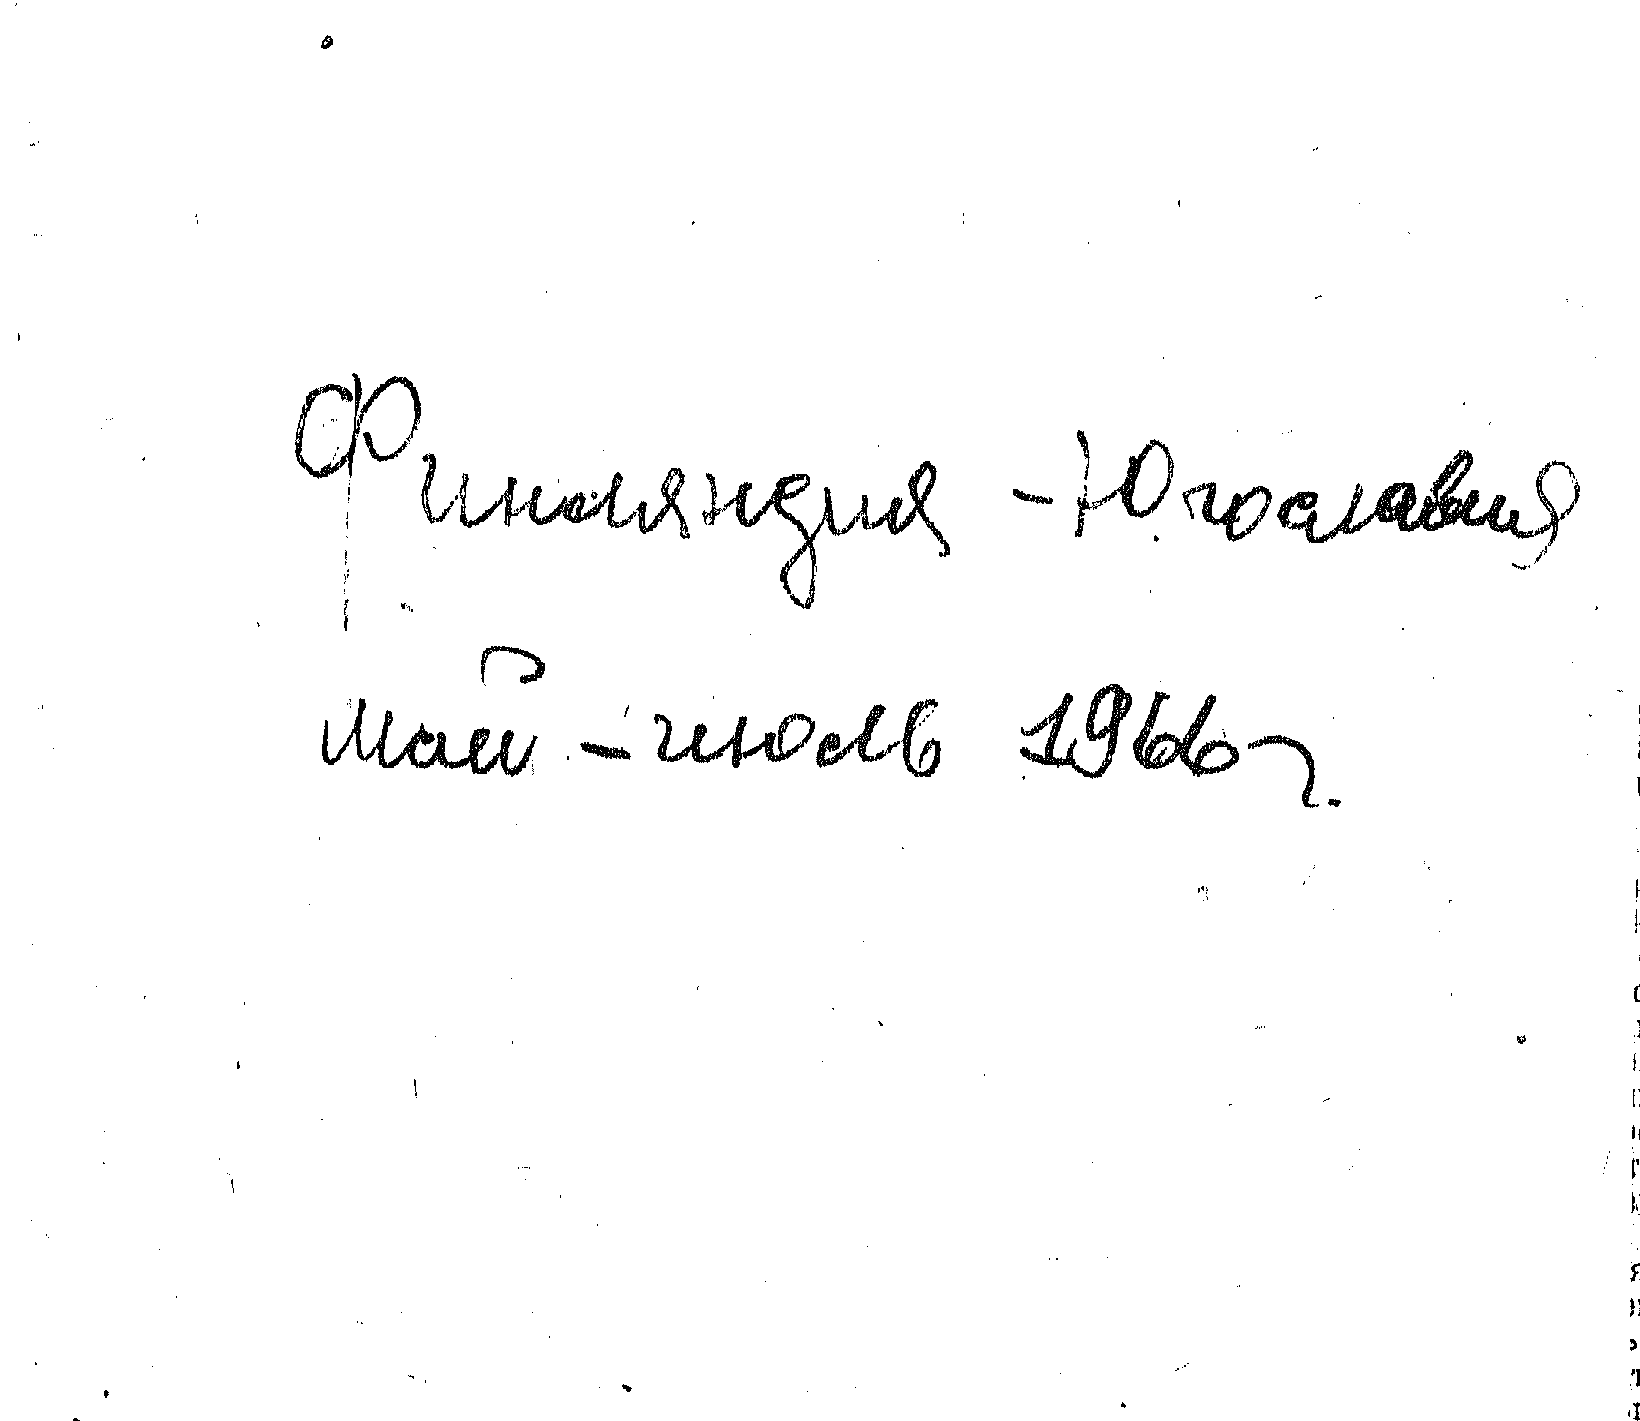 Финляндия - Югославия
май - июль 1966 г.